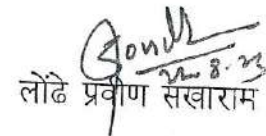 22.8.23
लोंढे प्रवीण सखाराम